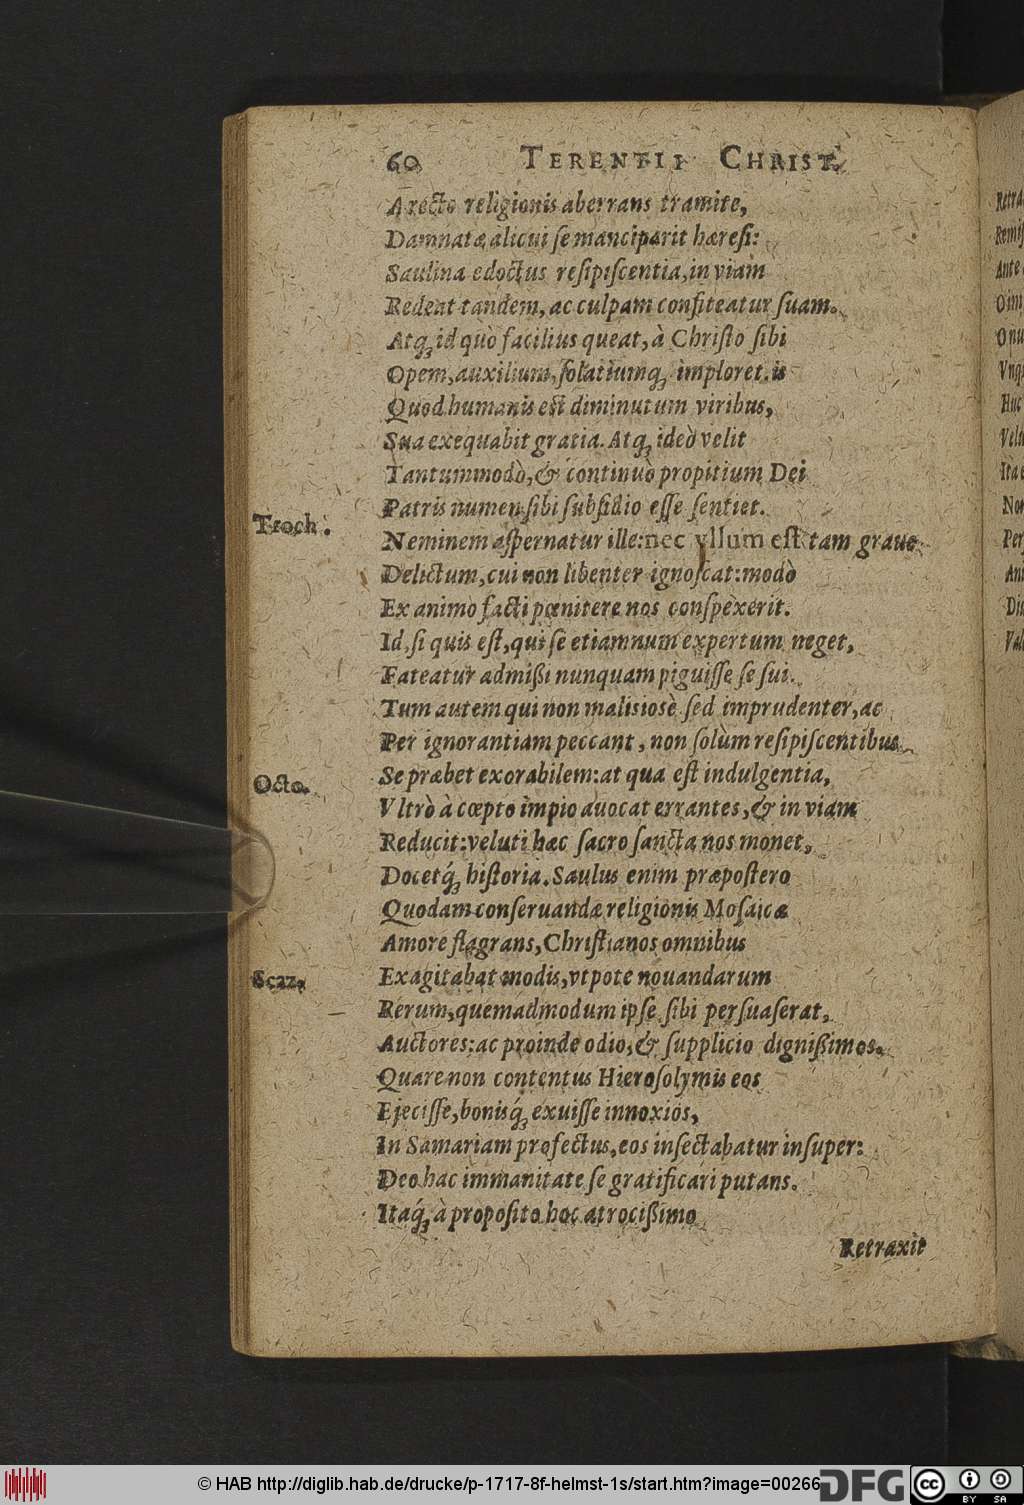 60 TERENTII CHRIST.
A recto religionis aberrans tramite,
Damnatæ alicui se manciparit hæresi:
Saulina edoctus resipiscentia, in viam
Redeat tandem, ac culpam confiteatur suam.
Atq; id quò facilius queat, à Christo sibi
Opem, auxilium, solatiumq; imploret. is
Quod humanis est diminutum viribus,
Sua exequabit gratia. Atq; ideò velit
Tantummodò, & continuò propitium Dei
Patris numen sibi subsidio esse sentiet.
Troch.
Neminem aspernatur ille: nec vllum est tam graue
Delictum, cui non libenter ignoscat: modò
Ex animo facti pœnitere nos conspexerit.
Id, si quis est, qui se etiamnum expertum neget,
Fateatur admißi nunquam piguisse se sui.
Tum autem qui non malisiosè sed imprudenter, ac
Per ignorantiam peccant, non solùm resipiscentibus
Octo.
Se præbet exorabilem: at qua est indulgentia,
Vltrò à cœpto impio auocat errantes, & in viam
Reducit: veluti hæc sacro sancta nos monet,
Docetq́; historia. Saulus enim præpostero
Quodam conseruandæ religionis Mosaicæ
Amore flagrans, Christianos omnibus
Scaz.
Exagitabat modis, vtpote nouandarum
Rerum, quemadmodum ipse sibi persuaserat,
Auctores: ac proinde odio, & supplicio dignißimos.
Quare non contentus Hierosolymis eos
Ejecisse, bonisq́; exuisse innoxios,
In Samariam profectus, eos insectabatur insuper:
Deo hac immanitate se gratificari putans.
Itaq́; à proposito hoc atrocißimo
Retraxit
© HAB http://diglib.hab.de/drucke/p-1717-8f-helmst-1s/start.htm?image=00266
DFG
cc BY SA